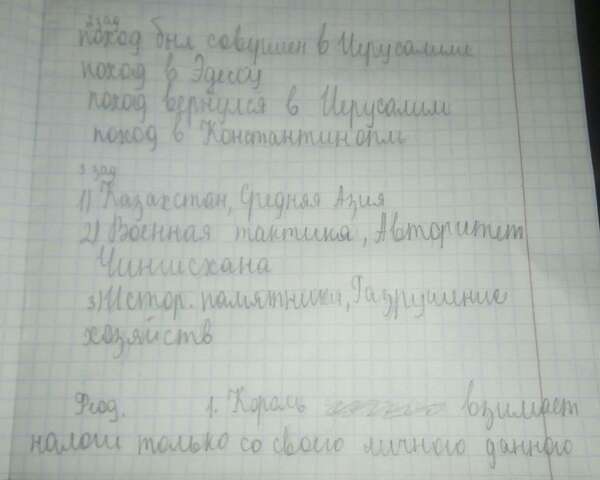 2 зад
поход был совершен в Иерусалиме
поход в Эдессу
поход вернулся в Иерусалим
поход в Константинополь
3 зад
1) Казахстан, Средняя Азия
2) Военная тактика, Авторитет
Чингисхана
3) Истор. памятники, Разрушение
хозяйств
1. Король взимает
налоги только со своего личного данного